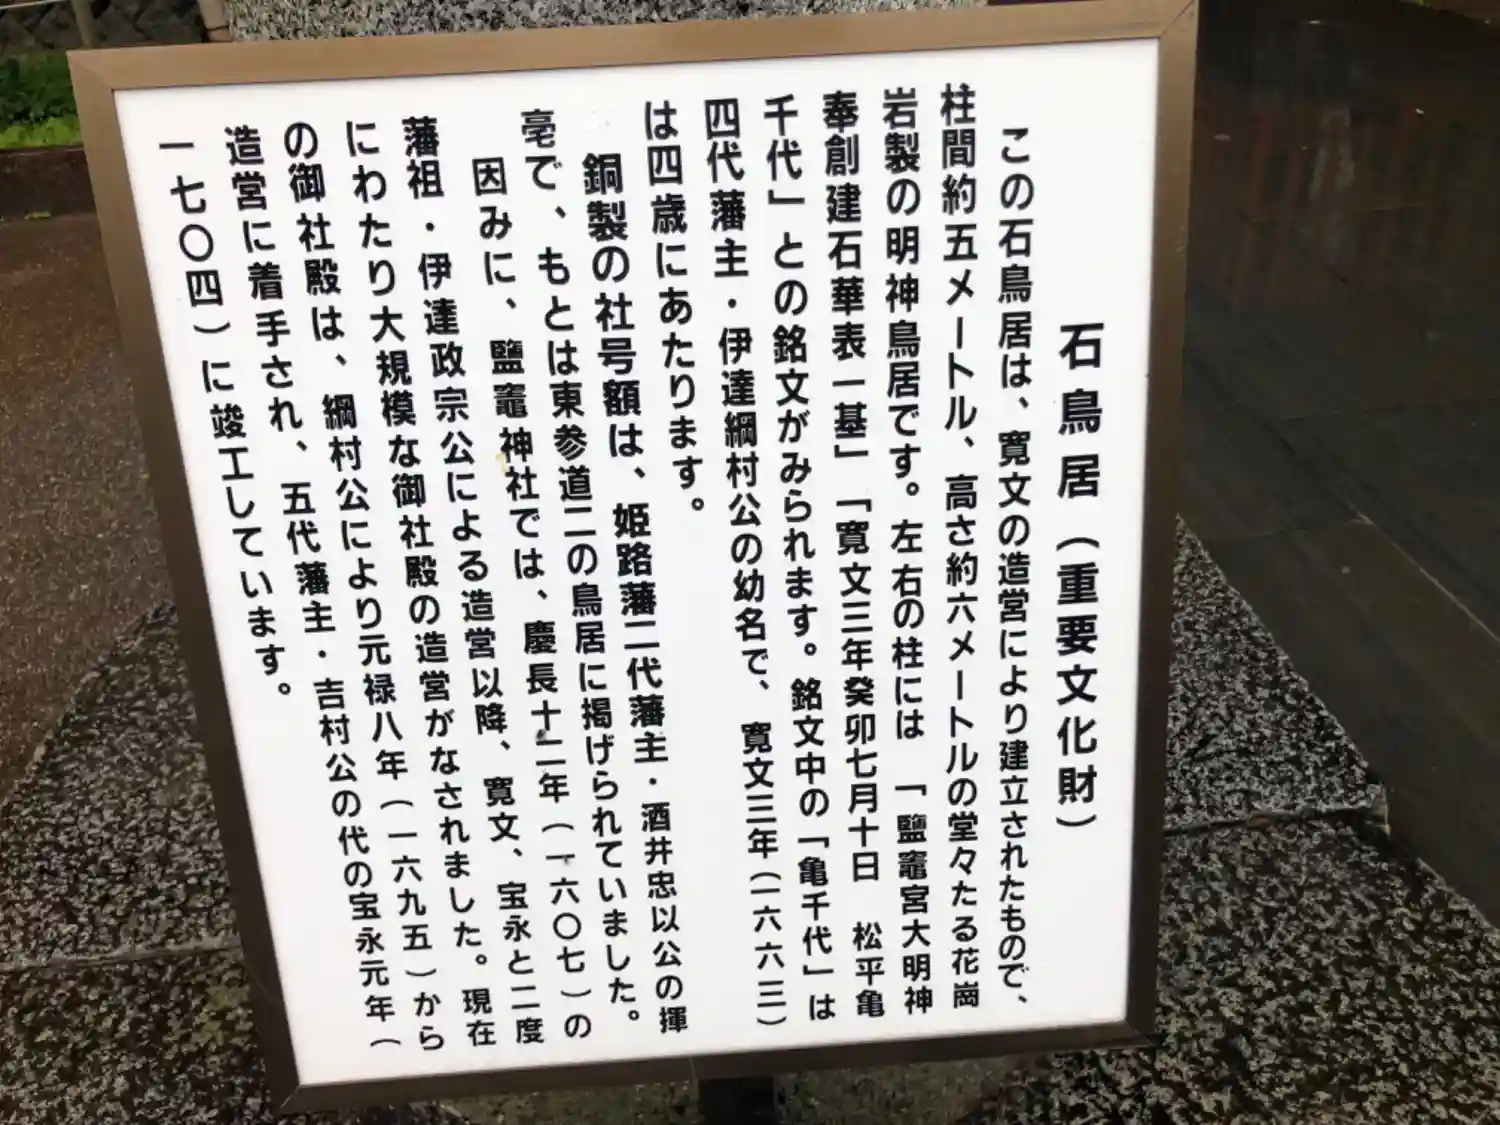 石鳥居(重要文化財)
この石鳥居は、寛文の造営により建立されたもので、
柱間約五メートル、高さ約六メートルの堂々たる花崗
岩製の明神鳥居です。左右の柱には「鹽竈宮大明神
奉創建石華表一基」「寛文三年癸卯七月十日 松平亀
千代」との銘文がみられます。銘文中の「亀千代」は
四代藩主・伊達綱村公の幼名で、寛文三年(一六六三)
は四歳にあたります。
銅製の社号額は、姫路藩二代藩主・酒井忠以公の揮
亳で、もとは東参道二の鳥居に掲げられていました。
因みに、鹽竈神社では、慶長十二年(一六〇七)の
藩祖・伊達政宗公による造営以降、寛文、宝永と二度
にわたり大規模な御社殿の造営がなされました。現在
の御社殿は、綱村公により元禄八年(一六九五)から
造営に着手され、五代藩主・吉村公の代の宝永元年(
一七〇四)に竣工しています。